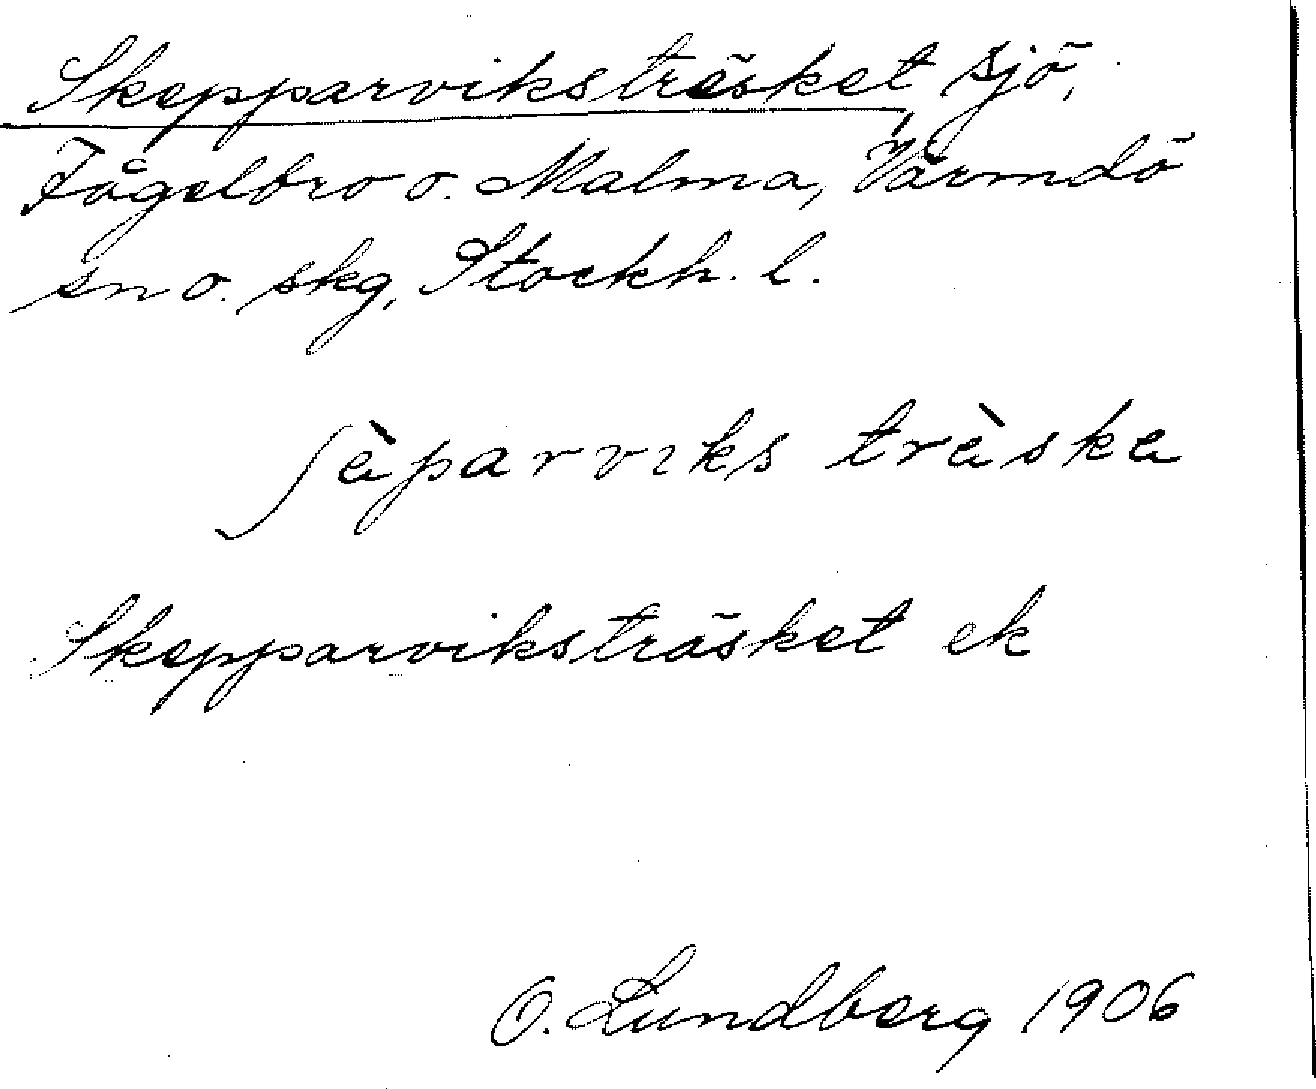 Skepparviksträsket sjö,
Fågelbro o. Malma, Värmdö
sn o. skg, Stockh. l.
ʃèparviks trèske
Skepparviksträsket ek
O. Lundberg 1906